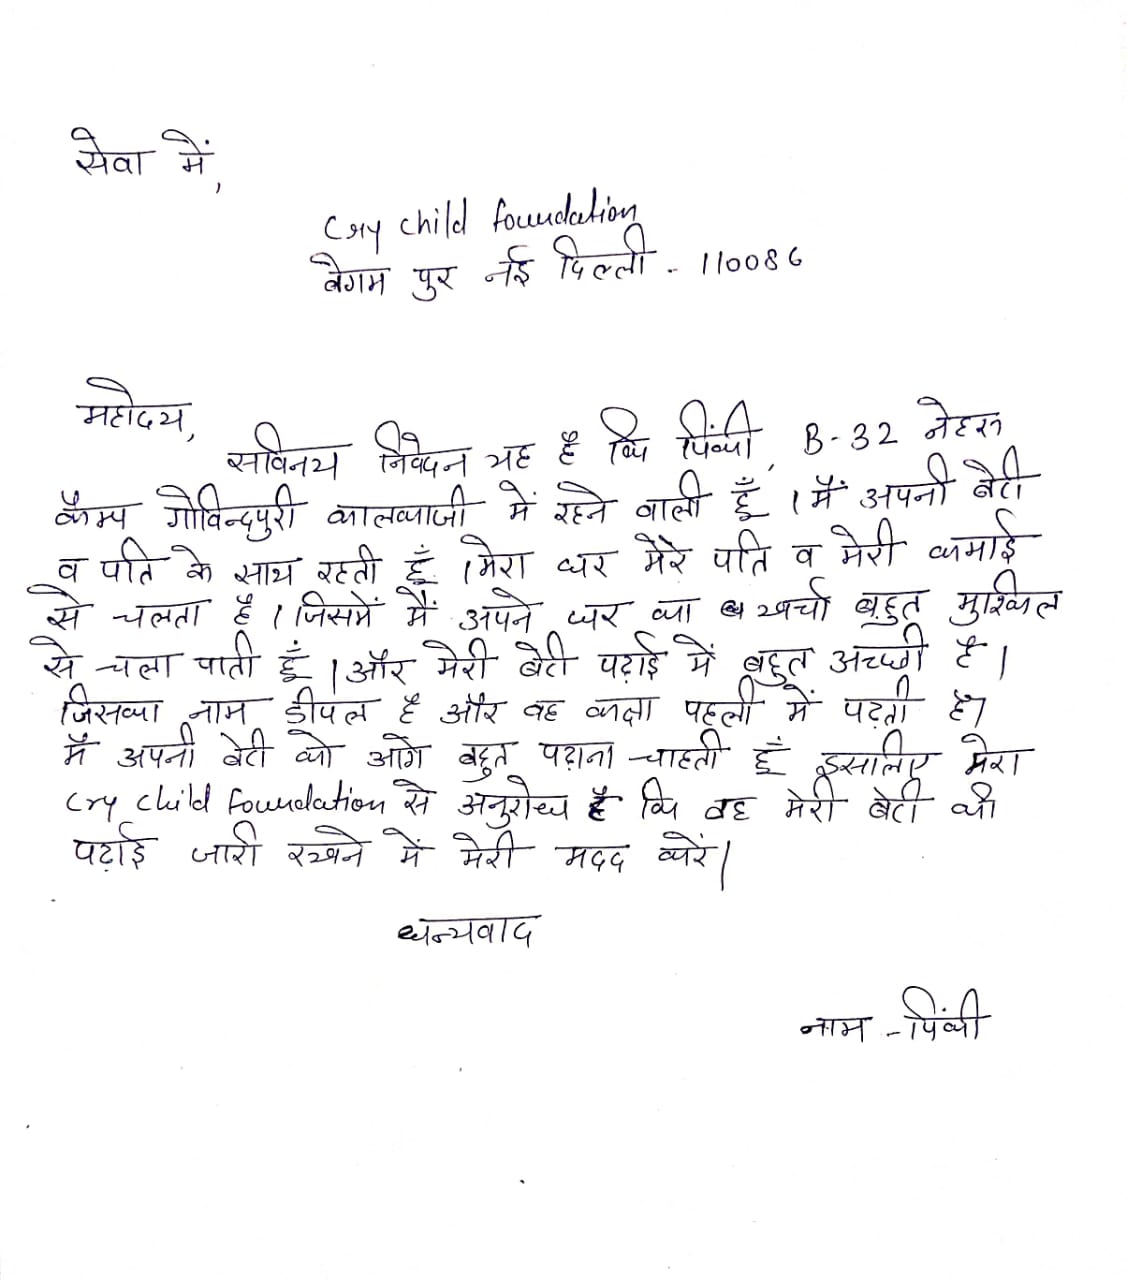 सेवा में,
Cry Child Foundation
बेगम पुर नई दिल्ली - 110086
महोदय,
सविनय निवेदन यह है कि पिंकी, B-32 नेहरू
कैम्प गोविन्दपुरी कालकाजी में रहने वाली हूँ। मैं अपनी बेटी
व पति के साथ रहती हूँ। मेरा घर मेरे पति व मेरी कमाई
से चलता है। जिसमें मैं अपने घर का खर्चा बहुत मुश्किल
से चला पाती हूँ। और मेरी बेटी पढ़ाई में बहुत अच्छी है।
जिसका नाम डीपल है और वह कक्षा पहली में पढ़ती है।
मैं अपनी बेटी को आगे बहुत पढ़ाना चाहती हूँ इसलिए मेरा
Cry Child Foundation से अनुरोध है कि वह मेरी बेटी की
पढ़ाई जारी रखने में मेरी मदद करें।
धन्यवाद
नाम - पिंकी